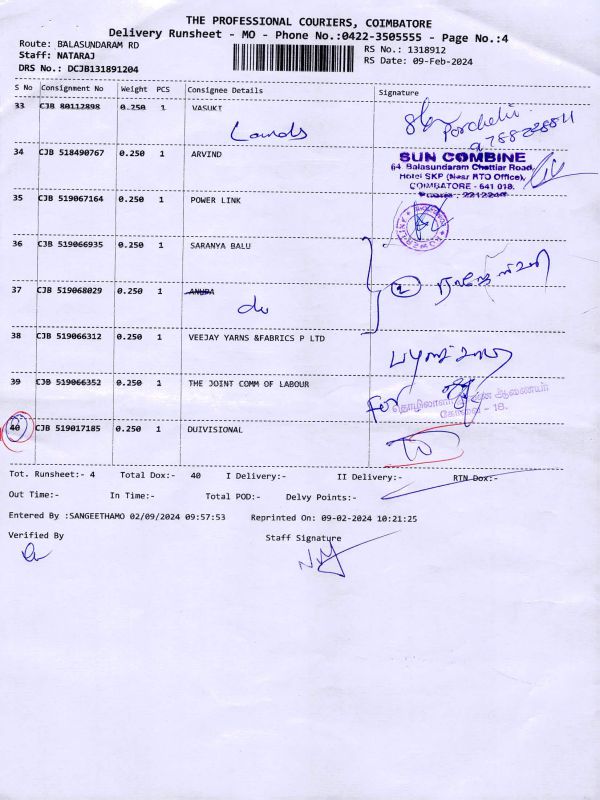 THE PROFESSIONAL COURIERS, COIMBATORE
Delivery Runsheet - MO - Phone No.:0422-3505555 - Page No.:4
Route: BALASUNDARAM RD
RS No.: 1318912
Staff: NATARAJ
RS Date: 09-Feb-2024
DRS No.: DCJB131891204
S No Consignment No Weight PCS Consignee Details Signature
33 CJB 80112898 0.250 1 VASUKI
34 CJB 518490767 0.250 1 ARVIND
SUN COMBINE
64, Balasundaram Chettiar Road,
Hotel SKP (Near RTO Office),
COIMBATORE - 641 018.
35 CJB 519067164 0.250 1 POWER LINK
36 CJB 519066935 0.250 1 SARANYA BALU
37 CJB 519068029 0.250 1 ANUPA
do
38 CJB 519066312 0.250 1 VEEJAY YARNS &FABRICS P LTD
39 CJB 519066352 0.250 1 THE JOINT COMM OF LABOUR
for
கோவை - 18.
40 CJB 519017185 0.250 1 DUIVISIONAL
Tot. Runsheet:- 4 Total Dox:- 40 I Delivery:- II Delivery:- RTN Dox:-
Out Time:- In Time:- Total POD:- Delvy Points:-
Entered By :SANGEETHAMO 02/09/2024 09:57:53 Reprinted On: 09-02-2024 10:21:25
Verified By Staff Signature